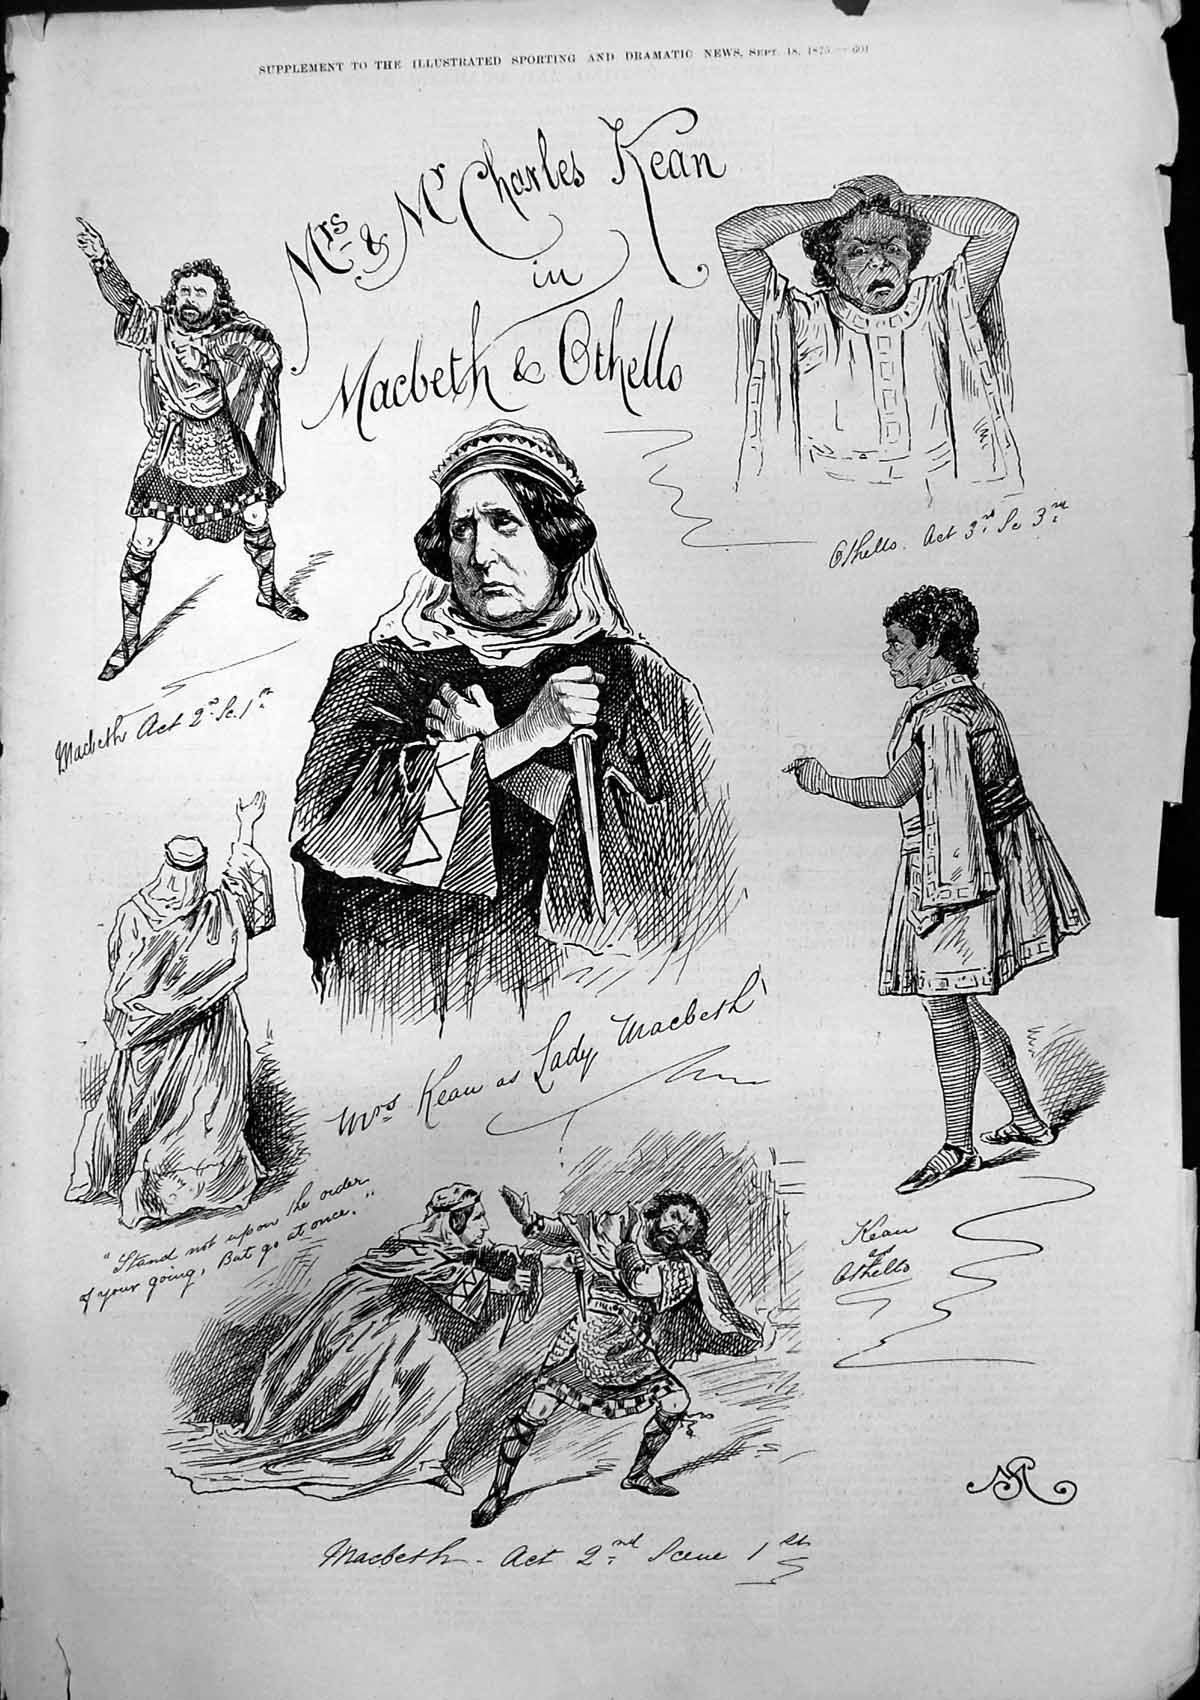 SUPPLEMENT TO THE ILLUSTRATED SPORTING AND DRAMATIC NEWS, SEPT. 18, 1875.—601
Mrs & Mr Charles Kean
in
Macbeth & Othello
Othello. Act 3rd Sc 3rd
Macbeth Act 2nd Sc. 1st
Mrs Kean as Lady Macbeth
"Stand not upon the order
of your going, But go at once."
Kean
as
Othello
Macbeth - Act 2nd Scene 1st